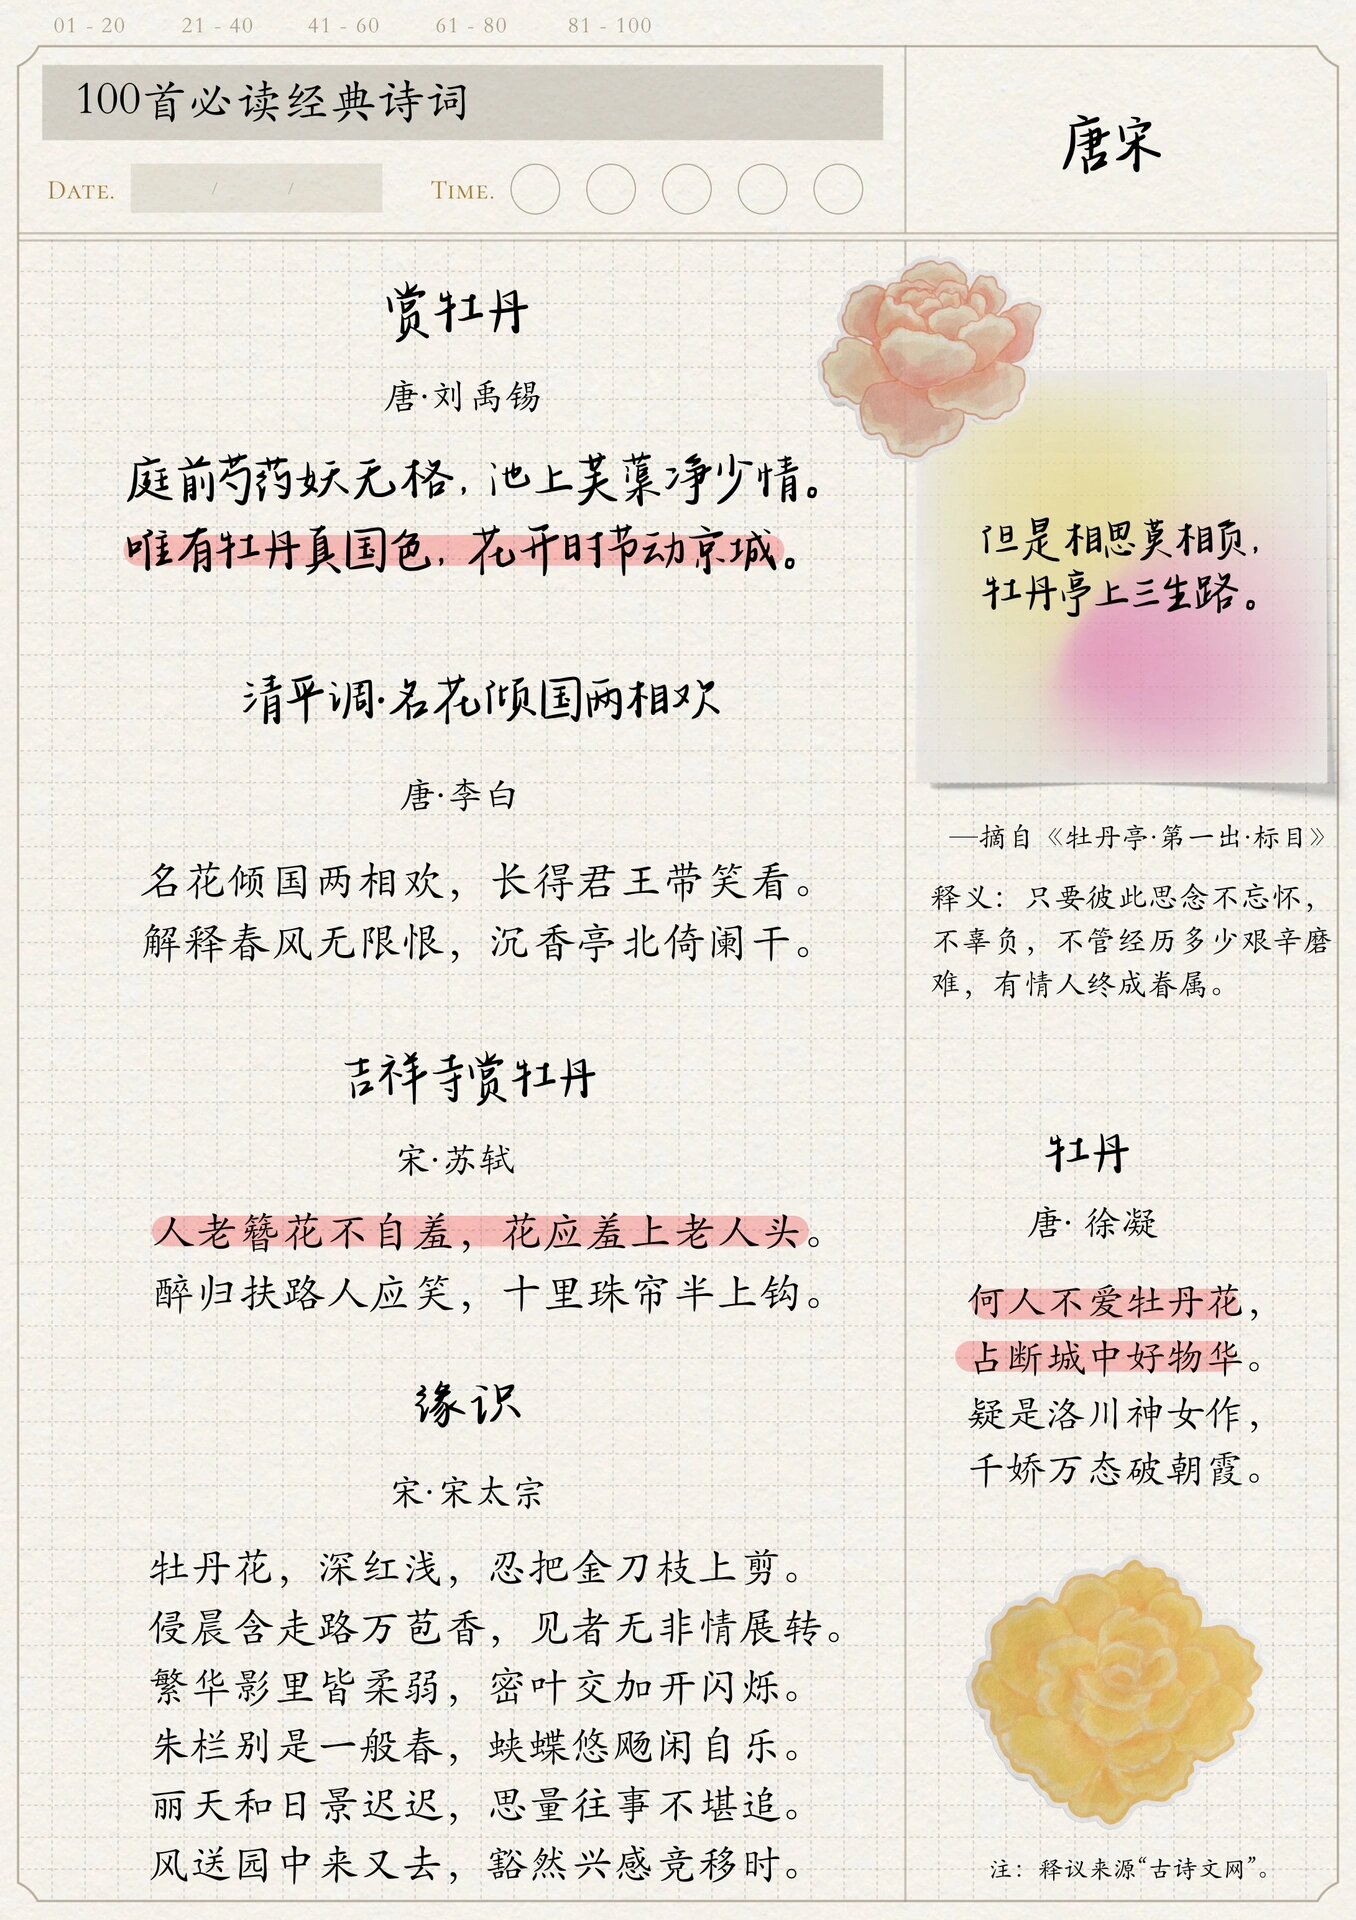 01 - 20 21 - 40 41 - 60 61 - 80 81 - 100
100首必读经典诗词
DATE. / / TIME.
唐宋
赏牡丹
唐·刘禹锡
庭前芍药妖无格，池上芙蕖净少情。
唯有牡丹真国色，花开时节动京城。
清平调·名花倾国两相欢
唐·李白
名花倾国两相欢，长得君王带笑看。
解释春风无限恨，沉香亭北倚阑干。
吉祥寺赏牡丹
宋·苏轼
人老簪花不自羞，花应羞上老人头。
醉归扶路人应笑，十里珠帘半上钩。
缘识
宋·宋太宗
牡丹花，深红浅，忍把金刀枝上剪。
侵晨含走路万苞香，见者无非情展转。
繁华影里皆柔弱，密叶交加开闪烁。
朱栏别是一般春，蛱蝶悠飏闲自乐。
丽天和日景迟迟，思量往事不堪追。
风送园中来又去，豁然兴感竞移时。
但是相思莫相负，
牡丹亭上三生路。
—摘自《牡丹亭·第一出·标目》
释义：只要彼此思念不忘怀，
不辜负，不管经历多少艰辛磨
难，有情人终成眷属。
牡丹
唐· 徐凝
何人不爱牡丹花，
占断城中好物华。
疑是洛川神女作，
千娇万态破朝霞。
注：释议来源“古诗文网”。